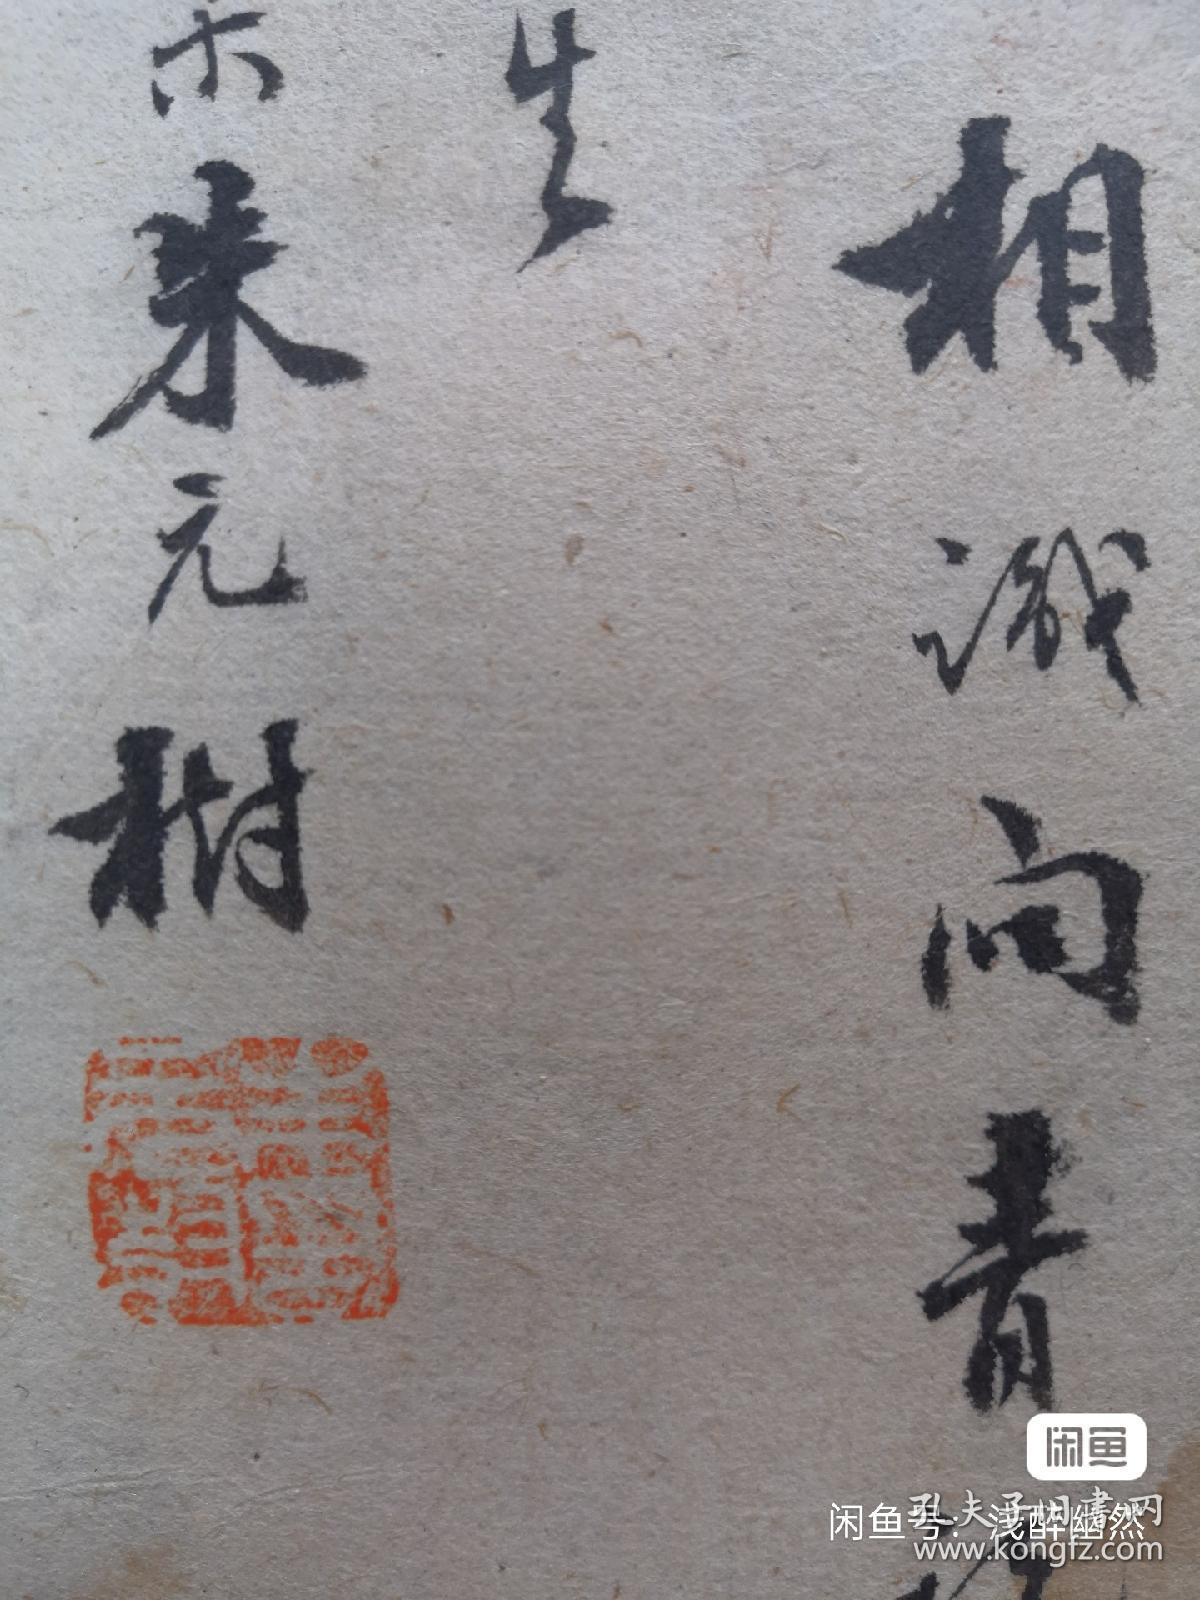 相識向青
生
朱元樹
闲鱼
闲鱼号：浅醉幽然
孔夫子旧书网
www.kongfz.com